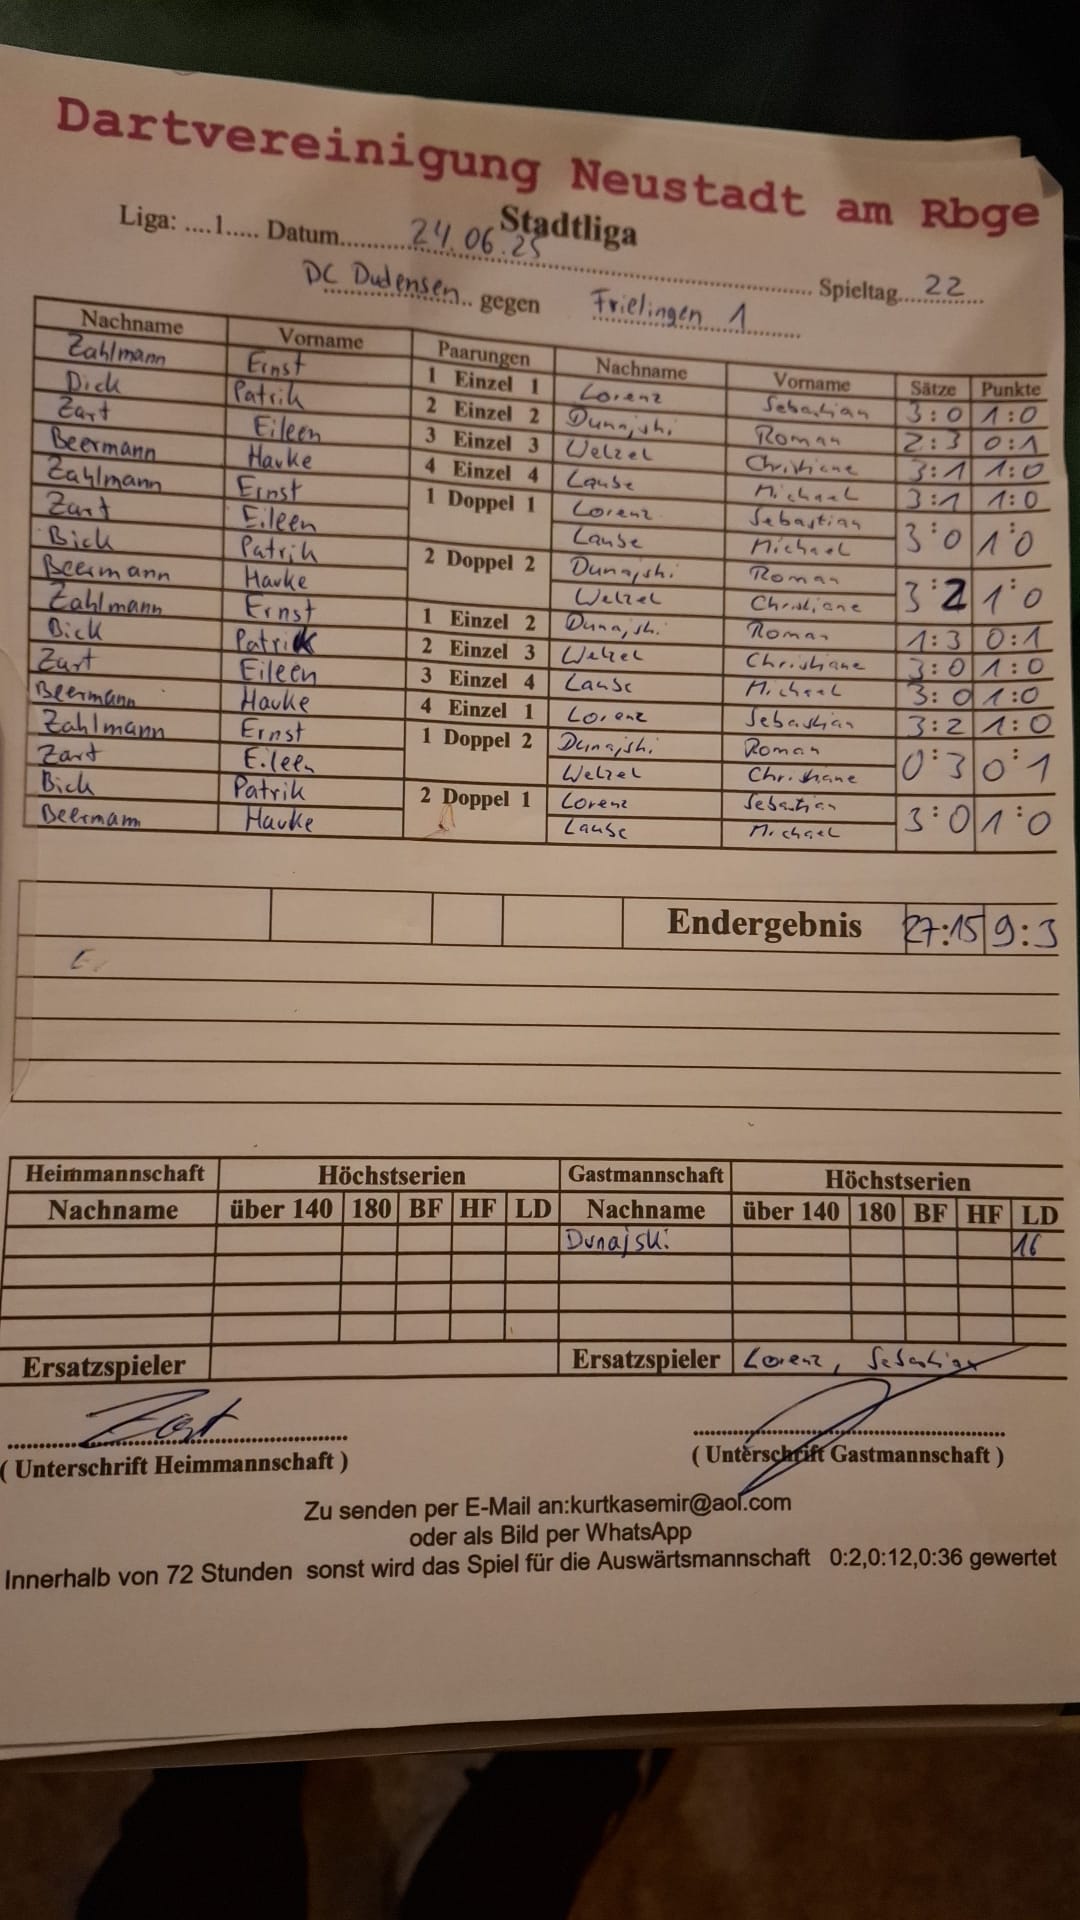 Dartvereinigung Neustadt am Rbge
Stadtliga
Liga: ....1..... Datum.......... 24.06.25 .......... Spieltag.... 22 ....
DC Dudensen gegen Frielingen 1
Nachname Vorname Paarungen Nachname Vorname Sätze Punkte
Zahlmann Ernst 1 Einzel 1 Lorenz Sebastian 3:0 1:0
Dick Patrik 2 Einzel 2 Dunajski Roman 2:3 0:1
Zart Eileen 3 Einzel 3 Welzel Christiane 3:1 1:0
Beermann Hauke 4 Einzel 4 Laube Michael 3:1 1:0
Zahlmann Ernst 1 Doppel 1 Lorenz Sebastian 3:0 1:0
Zart Eileen Laube Michael
Bick Patrik 2 Doppel 2 Dunajski Roman 3:2 1:0
Beermann Hauke Welzel Christiane
Zahlmann Ernst 1 Einzel 2 Dunajski Roman 1:3 0:1
Bick Patrick 2 Einzel 3 Welzel Christiane 3:0 1:0
Zart Eileen 3 Einzel 4 Laube Michael 3:0 1:0
Beermann Hauke 4 Einzel 1 Lorenz Sebastian 3:2 1:0
Zahlmann Ernst 1 Doppel 2 Dunajski Roman 0:3 0:1
Zart Eileen Welzel Christiane
Bick Patrik 2 Doppel 1 Lorenz Sebastian 3:0 1:0
Beermann Hauke Laube Michael
Endergebnis 27:15 9:3
E.
Heimmannschaft Höchstserien Gastmannschaft Höchstserien
Nachname über 140 180 BF HF LD Nachname über 140 180 BF HF LD
Dunajski 16
Ersatzspieler Ersatzspieler Lorenz, Sebastian
Zart
( Unterschrift Heimmannschaft ) ( Unterschrift Gastmannschaft )
Zu senden per E-Mail an:kurtkasemir@aol.com
oder als Bild per WhatsApp
Innerhalb von 72 Stunden sonst wird das Spiel für die Auswärtsmannschaft 0:2,0:12,0:36 gewertet